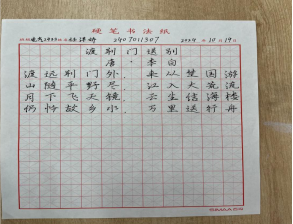 硬笔书法纸
电气2403 2407011307 2024 10 19
渡荆门送别
唐·李白
渡远荆门外，来从楚国游
山随平野尽，江入大荒流
月下飞天镜，云生结海楼
仍怜故乡水，万里送行舟